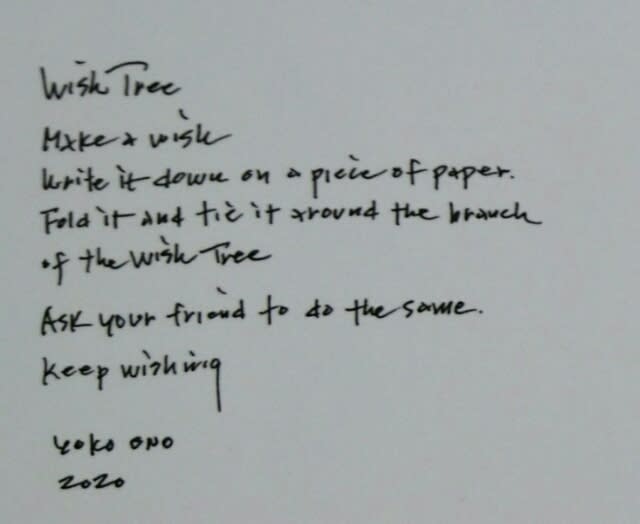 Wish Tree
Make a wish
Write it down on a piece of paper.
Fold it and tie it around the branch
of the Wish Tree
Ask your friend to do the same.
Keep wishing
yoko ono
2020